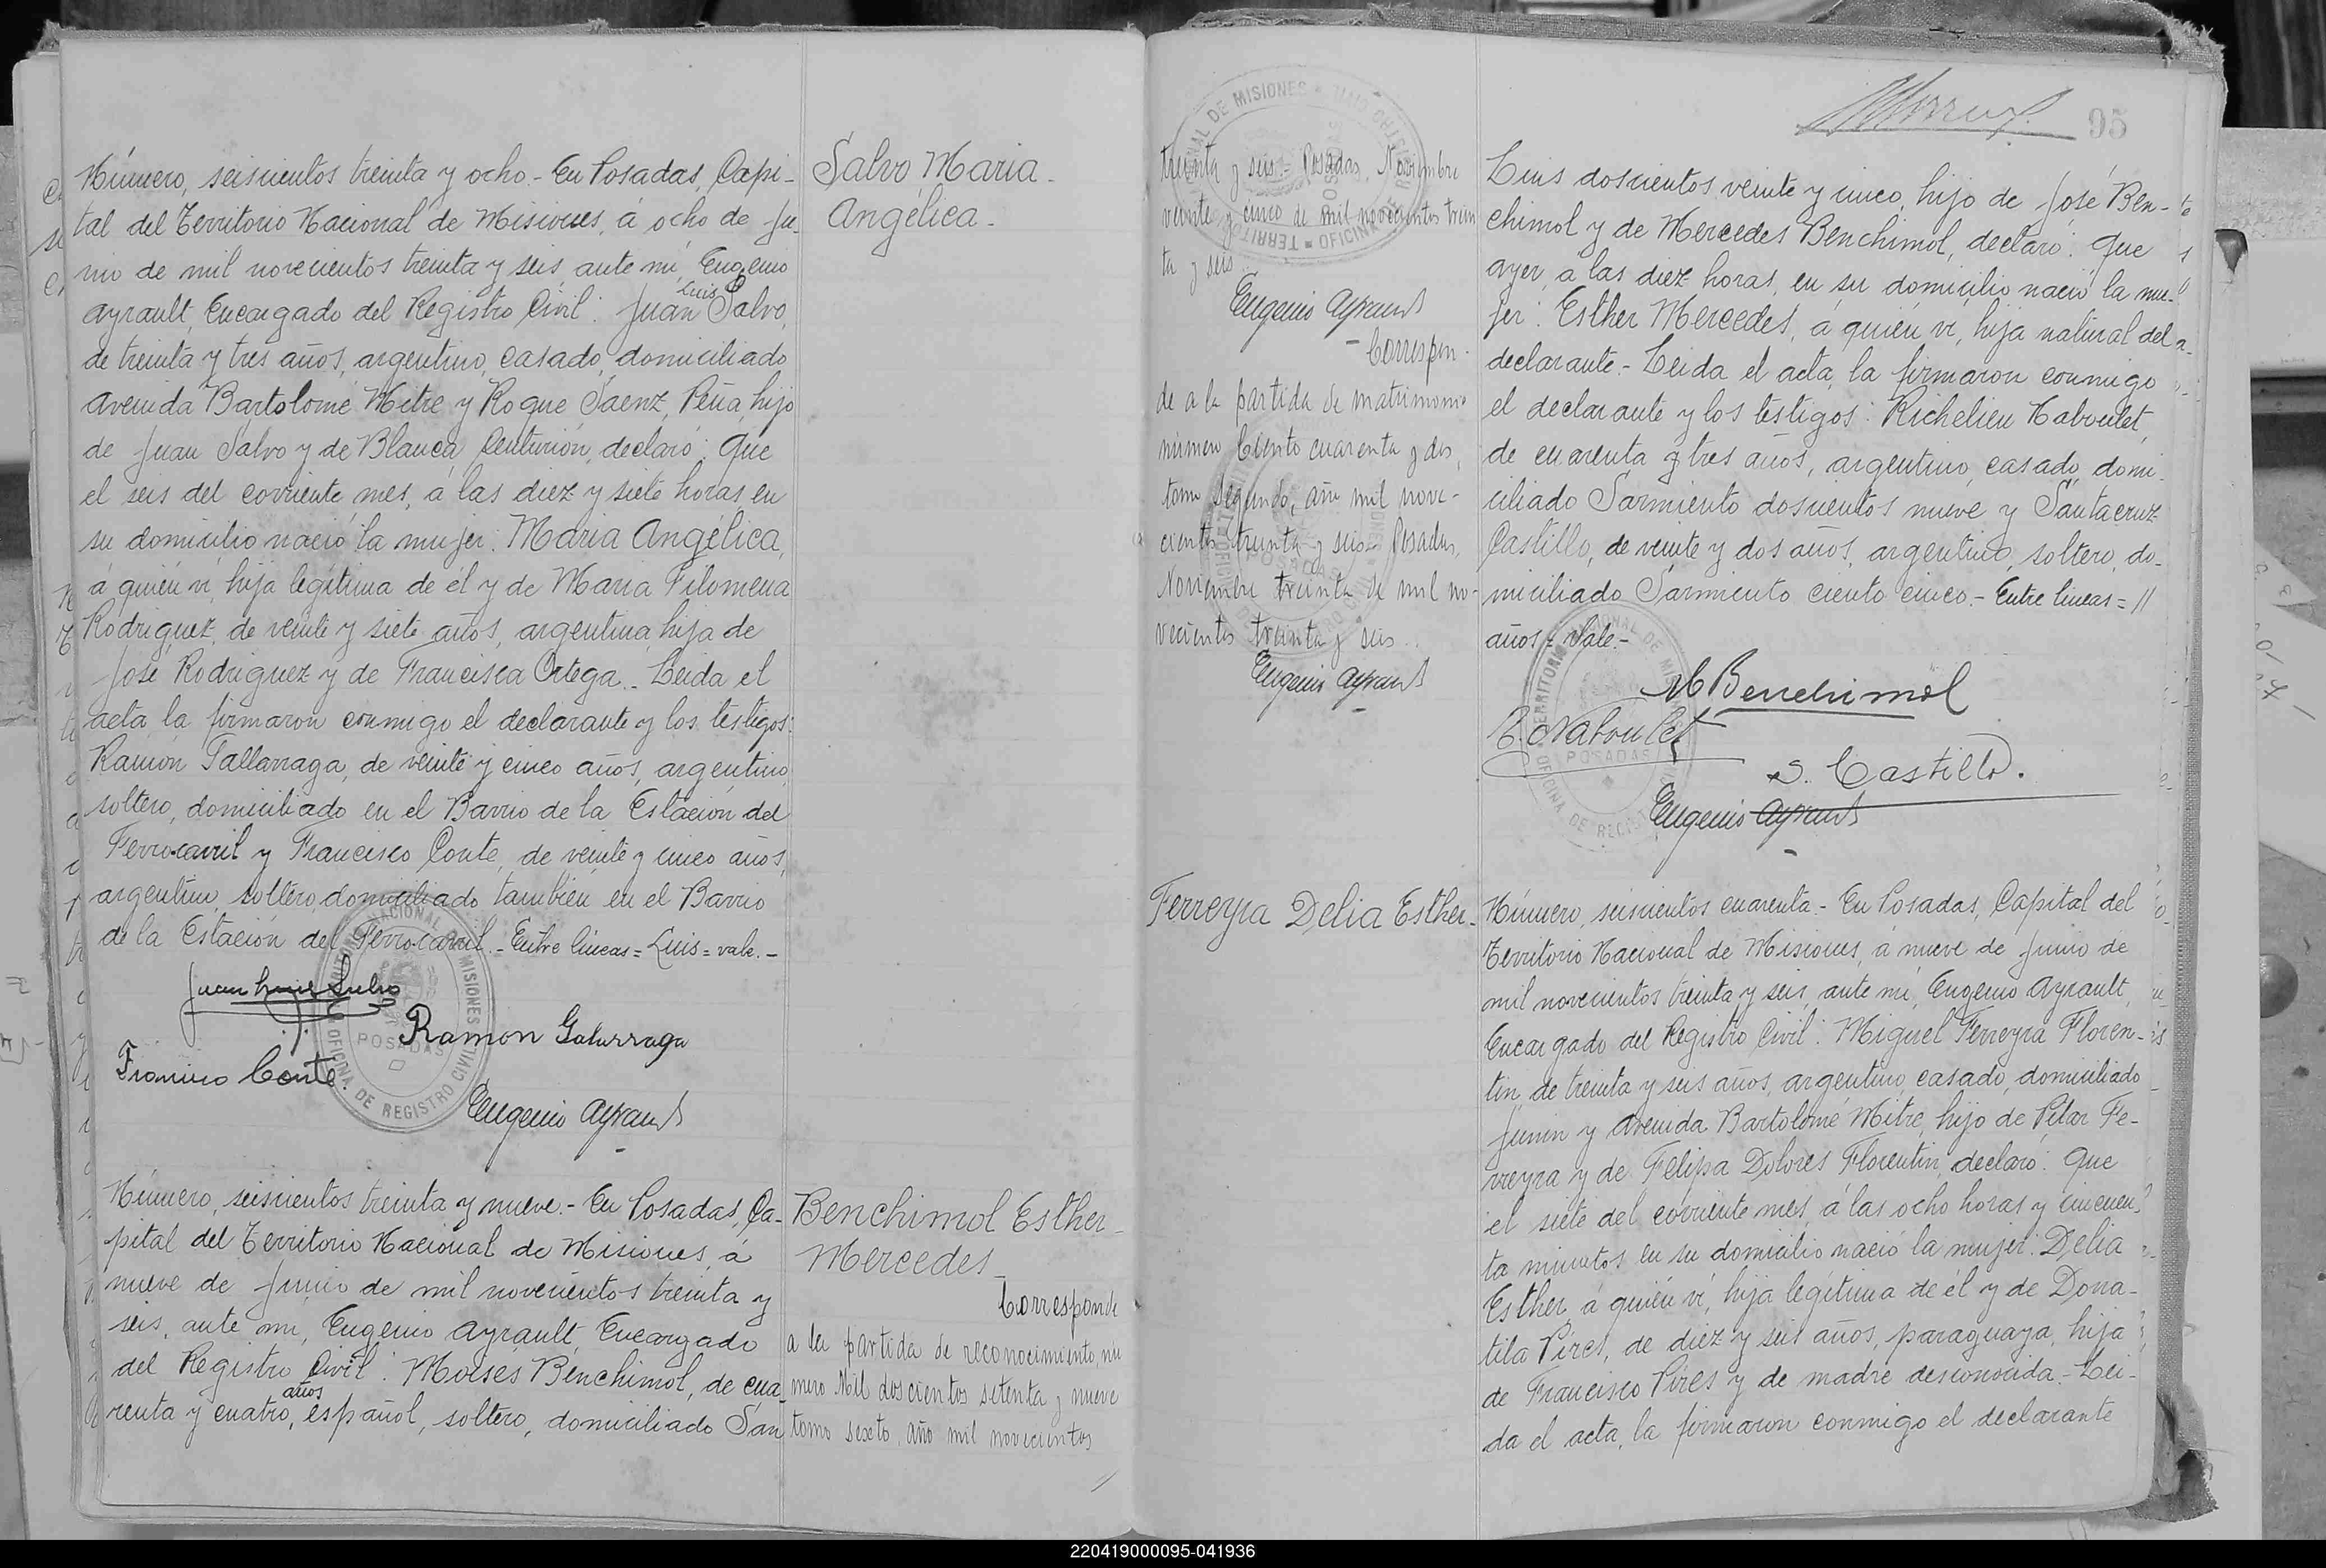 Número, seiscientos treinta y ocho.- En Posadas, Capi-
tal del Territorio Nacional de Misiones, á ocho de Ju-
nio de mil novecientos treinta y seis, ante mí, Eugenio
Ayrault, Encargado del Registro Civil: Juan Luis Salvo,
de treinta y tres años, argentino, casado, domiciliado
Avenida Bartolomé Mitre y Roque Saenz Peña, hijo
de Juan Salvo y de Blanca Centurión, declaró: Que
el seis del corriente mes, á las diez y siete horas en
su domicilio nació la mujer: Maria Angélica,
á quién ví, hija legítima de él y de Maria Filomena
Rodriguez, de veinte y siete años, argentina, hija de
José Rodriguez y de Francisca Ortega.- Leida el
acta, la firmaron conmigo el declarante y los testigos:
Ramón, de veinte y cinco años, argentino,
soltero, domiciliado en el Barrio de la Estación del
Ferrocarril y Francisco Conte, de veinte y cinco años,
argentino, soltero, domiciliado también en el Barrio
de la Estación del Ferrocarril.- Entre líneas= Luis= vale.-
Juan Luis Salvo
Ramon Galarraga
Francisco Conte
Eugenio Ayrault
Salvo Maria
Angélica.-
Número, seiscientos treinta y nueve.- En Posadas, Ca-
pital del Territorio Nacional de Misiones, á
nueve de Junio de mil novecientos treinta y
seis, ante mí, Eugenio Ayrault, Encargado
del Registro Civil: Moises Benchimol, de cua-
renta y cuatro años, español, soltero, domiciliado San
Benchimol Esther
Mercedes
Corresponde
a la partida de reconocimiento, nú
mero Mil doscientos setenta y nueve
tomo sexto, año mil novecientos
treinta y seis.- Posadas, Noviembre
veinte y cinco de mil novecientos trein
ta y seis
Eugenio Ayrault
- Correspon-
de a la partida de matrimonio
número Ciento cuarenta y dos,
tomo segundo, año mil nove-
cientos treinta y seis.- Posadas,
Noviembre treinta de mil no-
vecientos treinta y seis.
Eugenio Ayrault
95
Luis doscientos veinte y cinco, hijo de José Ben-
chimol y de Mercedes Benchimol, declaró: Que
ayer, á las diez horas, en su domicilio nació la mu-
jer: Esther Mercedes, á quién ví, hija natural del
declarante.- Leida el acta, la firmaron conmigo
el declarante y los testigos: Richelieu Naboulet,
de cuarenta y tres años, argentino, casado, domi-
ciliado Sarmiento doscientos nueve y Santacruz
Castillo, de veinte y dos años, argentino, soltero, do-
miciliado Sarmiento ciento cinco.- Entre lineas=//
años= Vale.-
M Benchimol
R. Naboulet
S. Castillo.
Eugenio Ayrault
Ferreyra Delia Esther.
Número, seiscientos cuarenta.- En Posadas, Capital del
Territorio Nacional de Misiones, á nueve de Junio de
mil novecientos treinta y seis, ante mí, Eugenio Ayrault,
Encargado del Registro Civil: Miguel Ferreyra Floren-
tin, de treinta y seis años, argentino casado, domiciliado
Junin y Avenida Bartolomé Mitre, hijo de Pilar Fe-
rreyra y de Felipa Dolores Florentin, declaró: Que
el siete del corriente mes, á las ocho horas y cincuen-
ta minutos en su domicilio nació la mujer: Delia
Esther á quién ví, hija legítima de él y de Dona-
tila Pires, de diez y seis años, paraguaya, hija
de Francisco Pires y de madre desconocida.- Lei-
da el acta, la firmaron conmigo el declarante
220419000095-041936